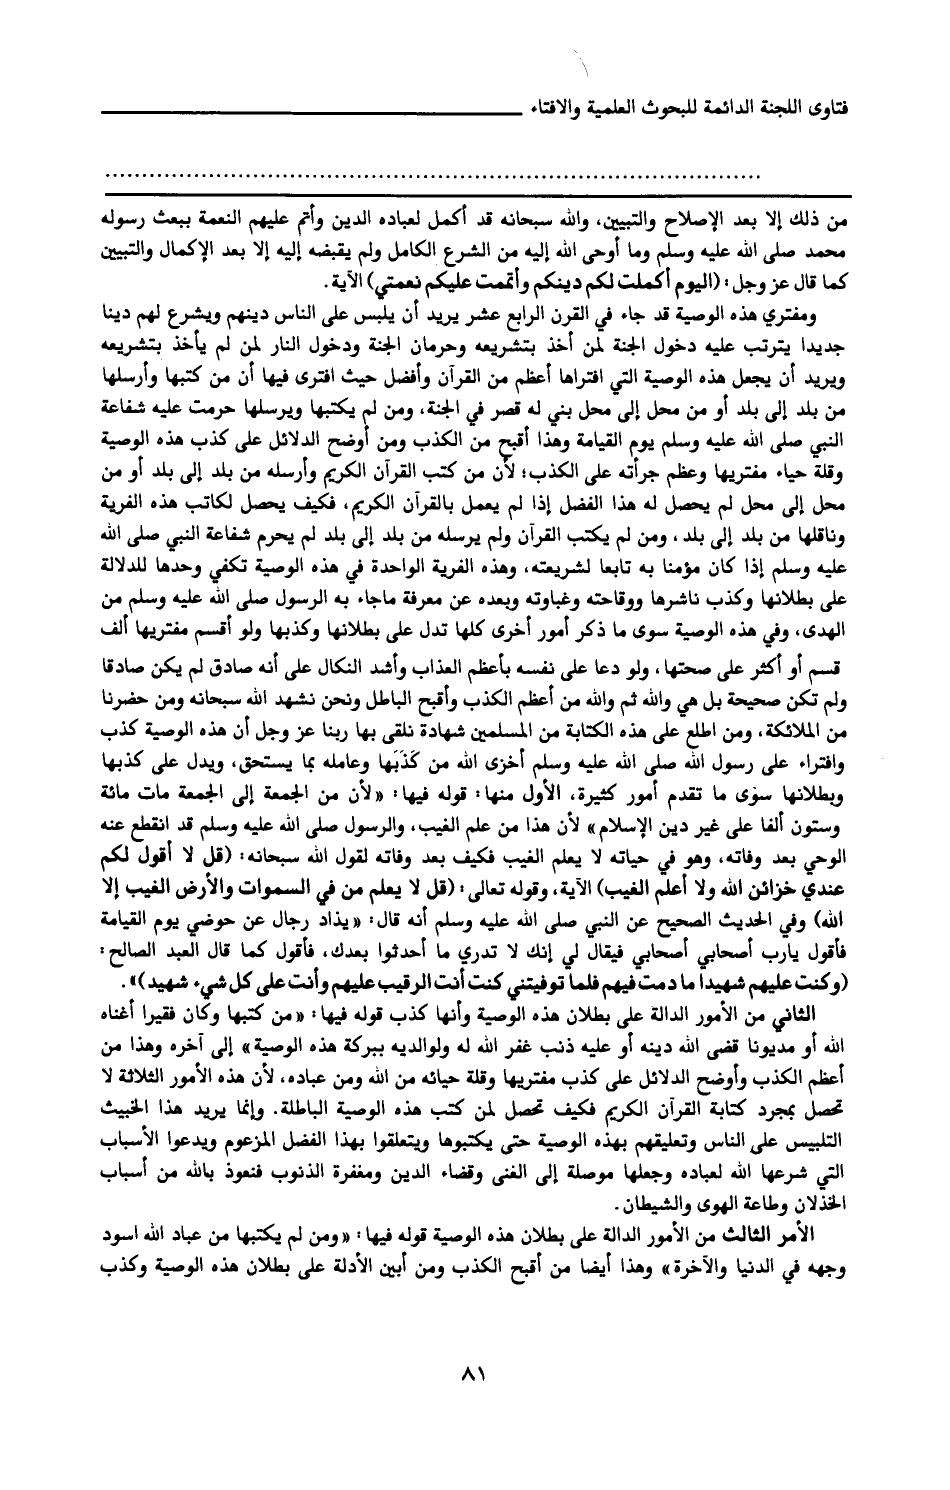 فتاوى اللجنة الدائمة للبحوث العلمية والافتاء
من ذلك إلا بعد الإصلاح والتبيين، والله سبحانه قد أكمل لعباده الدين وأتم عليهم النعمة ببعث رسوله
محمد صلى الله عليه وسلم وما أوحى الله إليه من الشرع الكامل ولم يقبضه إليه إلا بعد الإكمال والتبيين
كما قال عز وجل: (اليوم أكملت لكم دينكم وأتممت عليكم نعمتي) الآية.
ومفتري هذه الوصية قد جاء في القرن الرابع عشر يريد أن يلبس على الناس دينهم ويشرع لهم دينا
جديدا يترتب عليه دخول الجنة لمن أخذ بتشريعه وحرمان الجنة ودخول النار لمن لم يأخذ بتشريعه
ويريد أن يجعل هذه الوصية التي افتراها أعظم من القرآن وأفضل حيث افترى فيها أن من كتبها وأرسلها
من بلد إلى بلد أو من محل إلى محل بني له قصر في الجنة، ومن لم يكتبها ويرسلها حرمت عليه شفاعة
النبي صلى الله عليه وسلم يوم القيامة وهذا أقبح من الكذب ومن أوضح الدلائل على كذب هذه الوصية
وقلة حياء مفتريها وعظم جرأته على الكذب؛ لأن من كتب القرآن الكريم وأرسله من بلد إلى بلد أو من
محل إلى محل لم يحصل له هذا الفضل إذا لم يعمل بالقرآن الكريم، فكيف يحصل لكاتب هذه الفرية
وناقلها من بلد إلى بلد، ومن لم يكتب القرآن ولم يرسله من بلد إلى بلد لم يحرم شفاعة النبي صلى الله
عليه وسلم إذا كان مؤمنا به تابعا لشريعته، وهذه الفرية الواحدة في هذه الوصية تكفي وحدها للدلالة
على بطلانها وكذب ناشرها ووقاحته وغباوته وبعده عن معرفة ماجاء به الرسول صلى الله عليه وسلم من
الهدى، وفي هذه الوصية سوى ما ذكر أمور أخرى كلها تدل على بطلانها وكذبها ولو أقسم مفتريها ألف
قسم أو أكثر على صحتها، ولو دعا على نفسه بأعظم العذاب وأشد النكال على أنه صادق لم يكن صادقا
ولم تكن صحيحة بل هي والله ثم والله من أعظم الكذب وأقبح الباطل ونحن نشهد الله سبحانه ومن حضرنا
من الملائكة، ومن اطلع على هذه الكتابة من المسلمين شهادة نلقى بها ربنا عز وجل أن هذه الوصية كذب
وافتراء على رسول الله صلى الله عليه وسلم أخزى الله من كَذَبَها وعامله بما يستحق، ويدل على كذبها
وبطلانها سوى ما تقدم أمور كثيرة، الأول منها: قوله فيها: «لأن من الجمعة إلى الجمعة مات مائة
وستون ألفا على غير دين الإسلام» لأن هذا من علم الغيب، والرسول صلى الله عليه وسلم قد انقطع عنه
الوحي بعد وفاته، وهو في حياته لا يعلم الغيب فكيف بعد وفاته لقول الله سبحانه: (قل لا أقول لكم
عندي خزائن الله ولا أعلم الغيب) الآية، وقوله تعالى: (قل لا يعلم من في السموات والأرض الغيب إلا
الله) وفي الحديث الصحيح عن النبي صلى الله عليه وسلم أنه قال: «يذاد رجال عن حوضي يوم القيامة
فأقول يارب أصحابي أصحابي فيقال لي إنك لا تدري ما أحدثوا بعدك، فأقول كما قال العبد الصالح:
(وكنت عليهم شهيدا ما دمت فيهم فلما توفيتني كنت أنت الرقيب عليهم وأنت على كل شيء شهيد)».
الثاني من الأمور الدالة على بطلان هذه الوصية وأنها كذب قوله فيها: «من كتبها وكان فقيرا أغناه
الله أو مديونا قضى الله دينه أو عليه ذنب غفر الله له ولوالديه ببركة هذه الوصية» إلى آخره وهذا من
أعظم الكذب وأوضح الدلائل على كذب مفتريها وقلة حيائه من الله ومن عباده، لأن هذه الأمور الثلاثة لا
تحصل بمجرد كتابة القرآن الكريم فكيف تحصل لمن كتب هذه الوصية الباطلة. وإنما يريد هذا الخبيث
التلبيس على الناس وتعليقهم بهذه الوصية حتى يكتبوها ويتعلقوا بهذا الفضل المزعوم ويدعوا الأسباب
التي شرعها الله لعباده وجعلها موصلة إلى الغنى وقضاء الدين ومغفرة الذنوب فنعوذ بالله من أسباب
الخذلان وطاعة الهوى والشيطان.
الأمر الثالث من الأمور الدالة على بطلان هذه الوصية قوله فيها: «ومن لم يكتبها من عباد الله اسود
وجهه في الدنيا والآخرة» وهذا أيضا من أقبح الكذب ومن أبين الأدلة على بطلان هذه الوصية وكذب
٨١